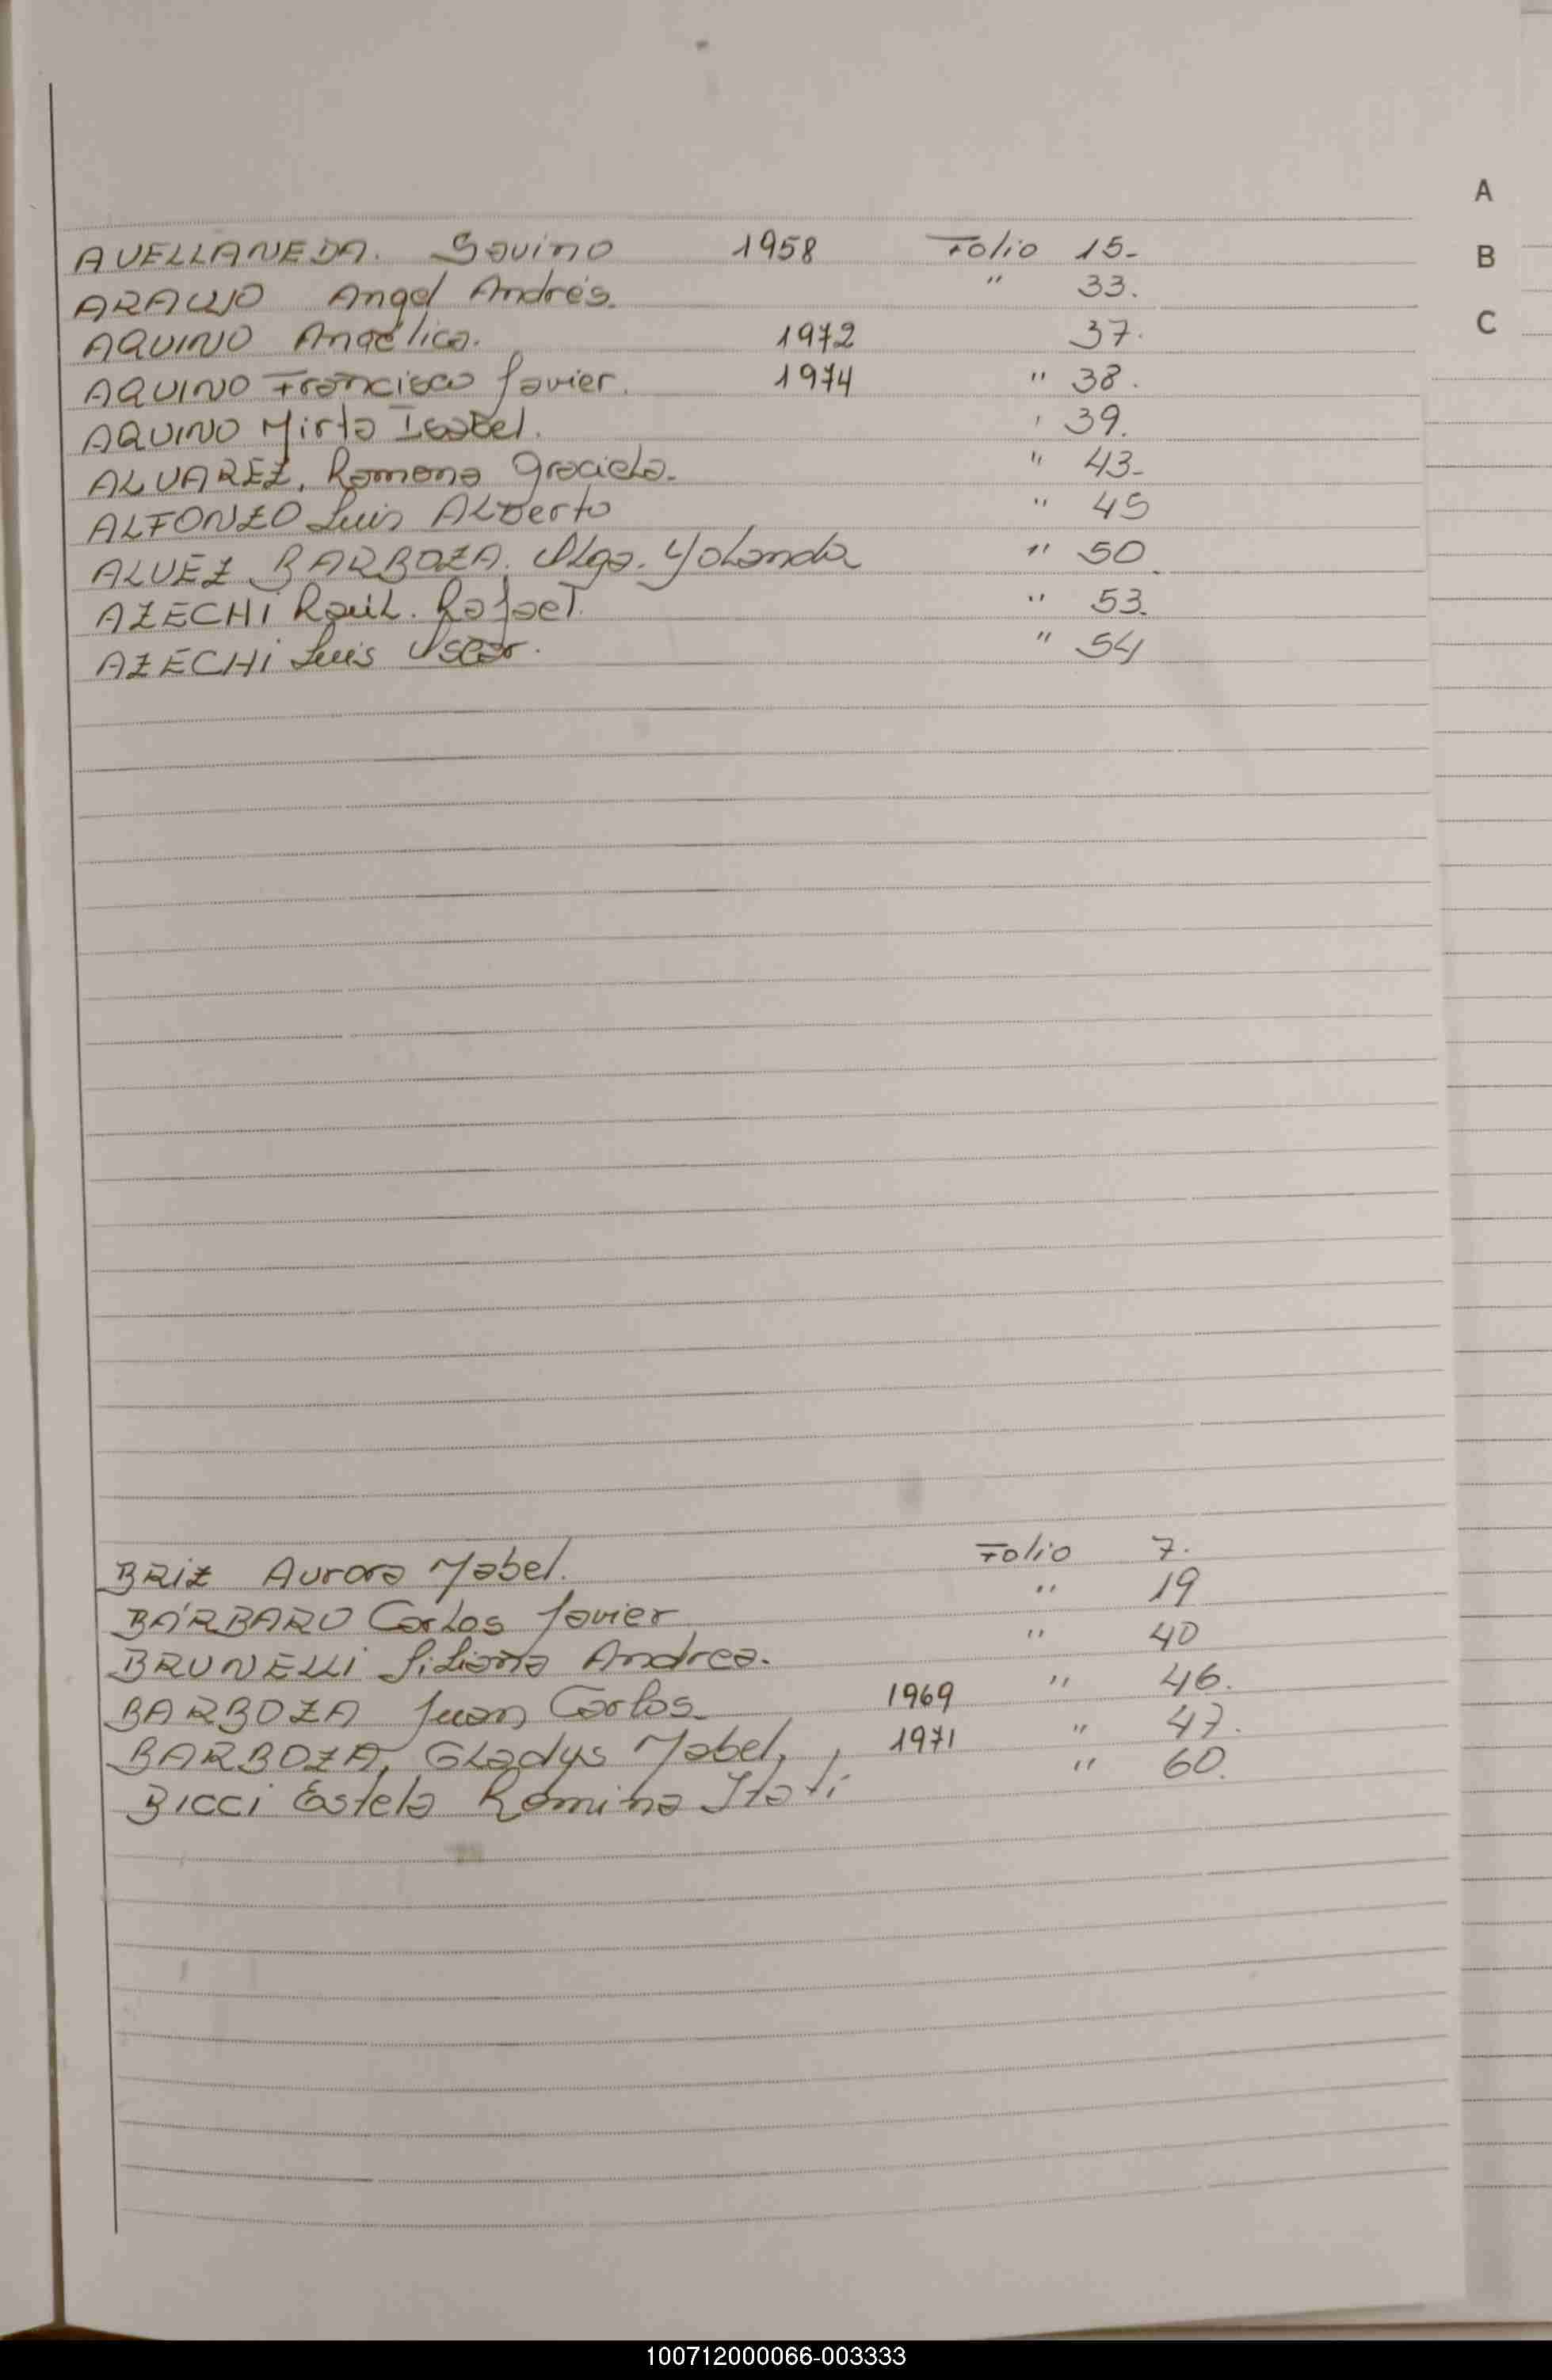 A
B
C
AVELLANEDA. Savino 1958 Folio 15-
ARAUJO Angel Andrés. " 33.
AQUINO Angélica. 1972 37.
AQUINO Francisco Javier. 1974 " 38.
AQUINO Mirta Isabel. ' 39.
ALVAREZ, Ramona Graciela. " 43-
ALFONZO Luis Alberto " 45
ALVEZ BARBOZA. Olga. Yolanda " 50
AZECHI Raúl. Rafael. " 53.
AZECHI Luis Oscar. " 54
BRIZ Aurora Mabel. Folio 7.
BÁRBARO Carlos Javier " 19
BRUNELLI Liliana Andrea. " 40
BARBOZA Juan Carlos. 1969 " 46.
BARBOZA, Gladys Mabel, 1971 " 47.
BICCI Estela Romina Itatí " 60.
100712000066-003333